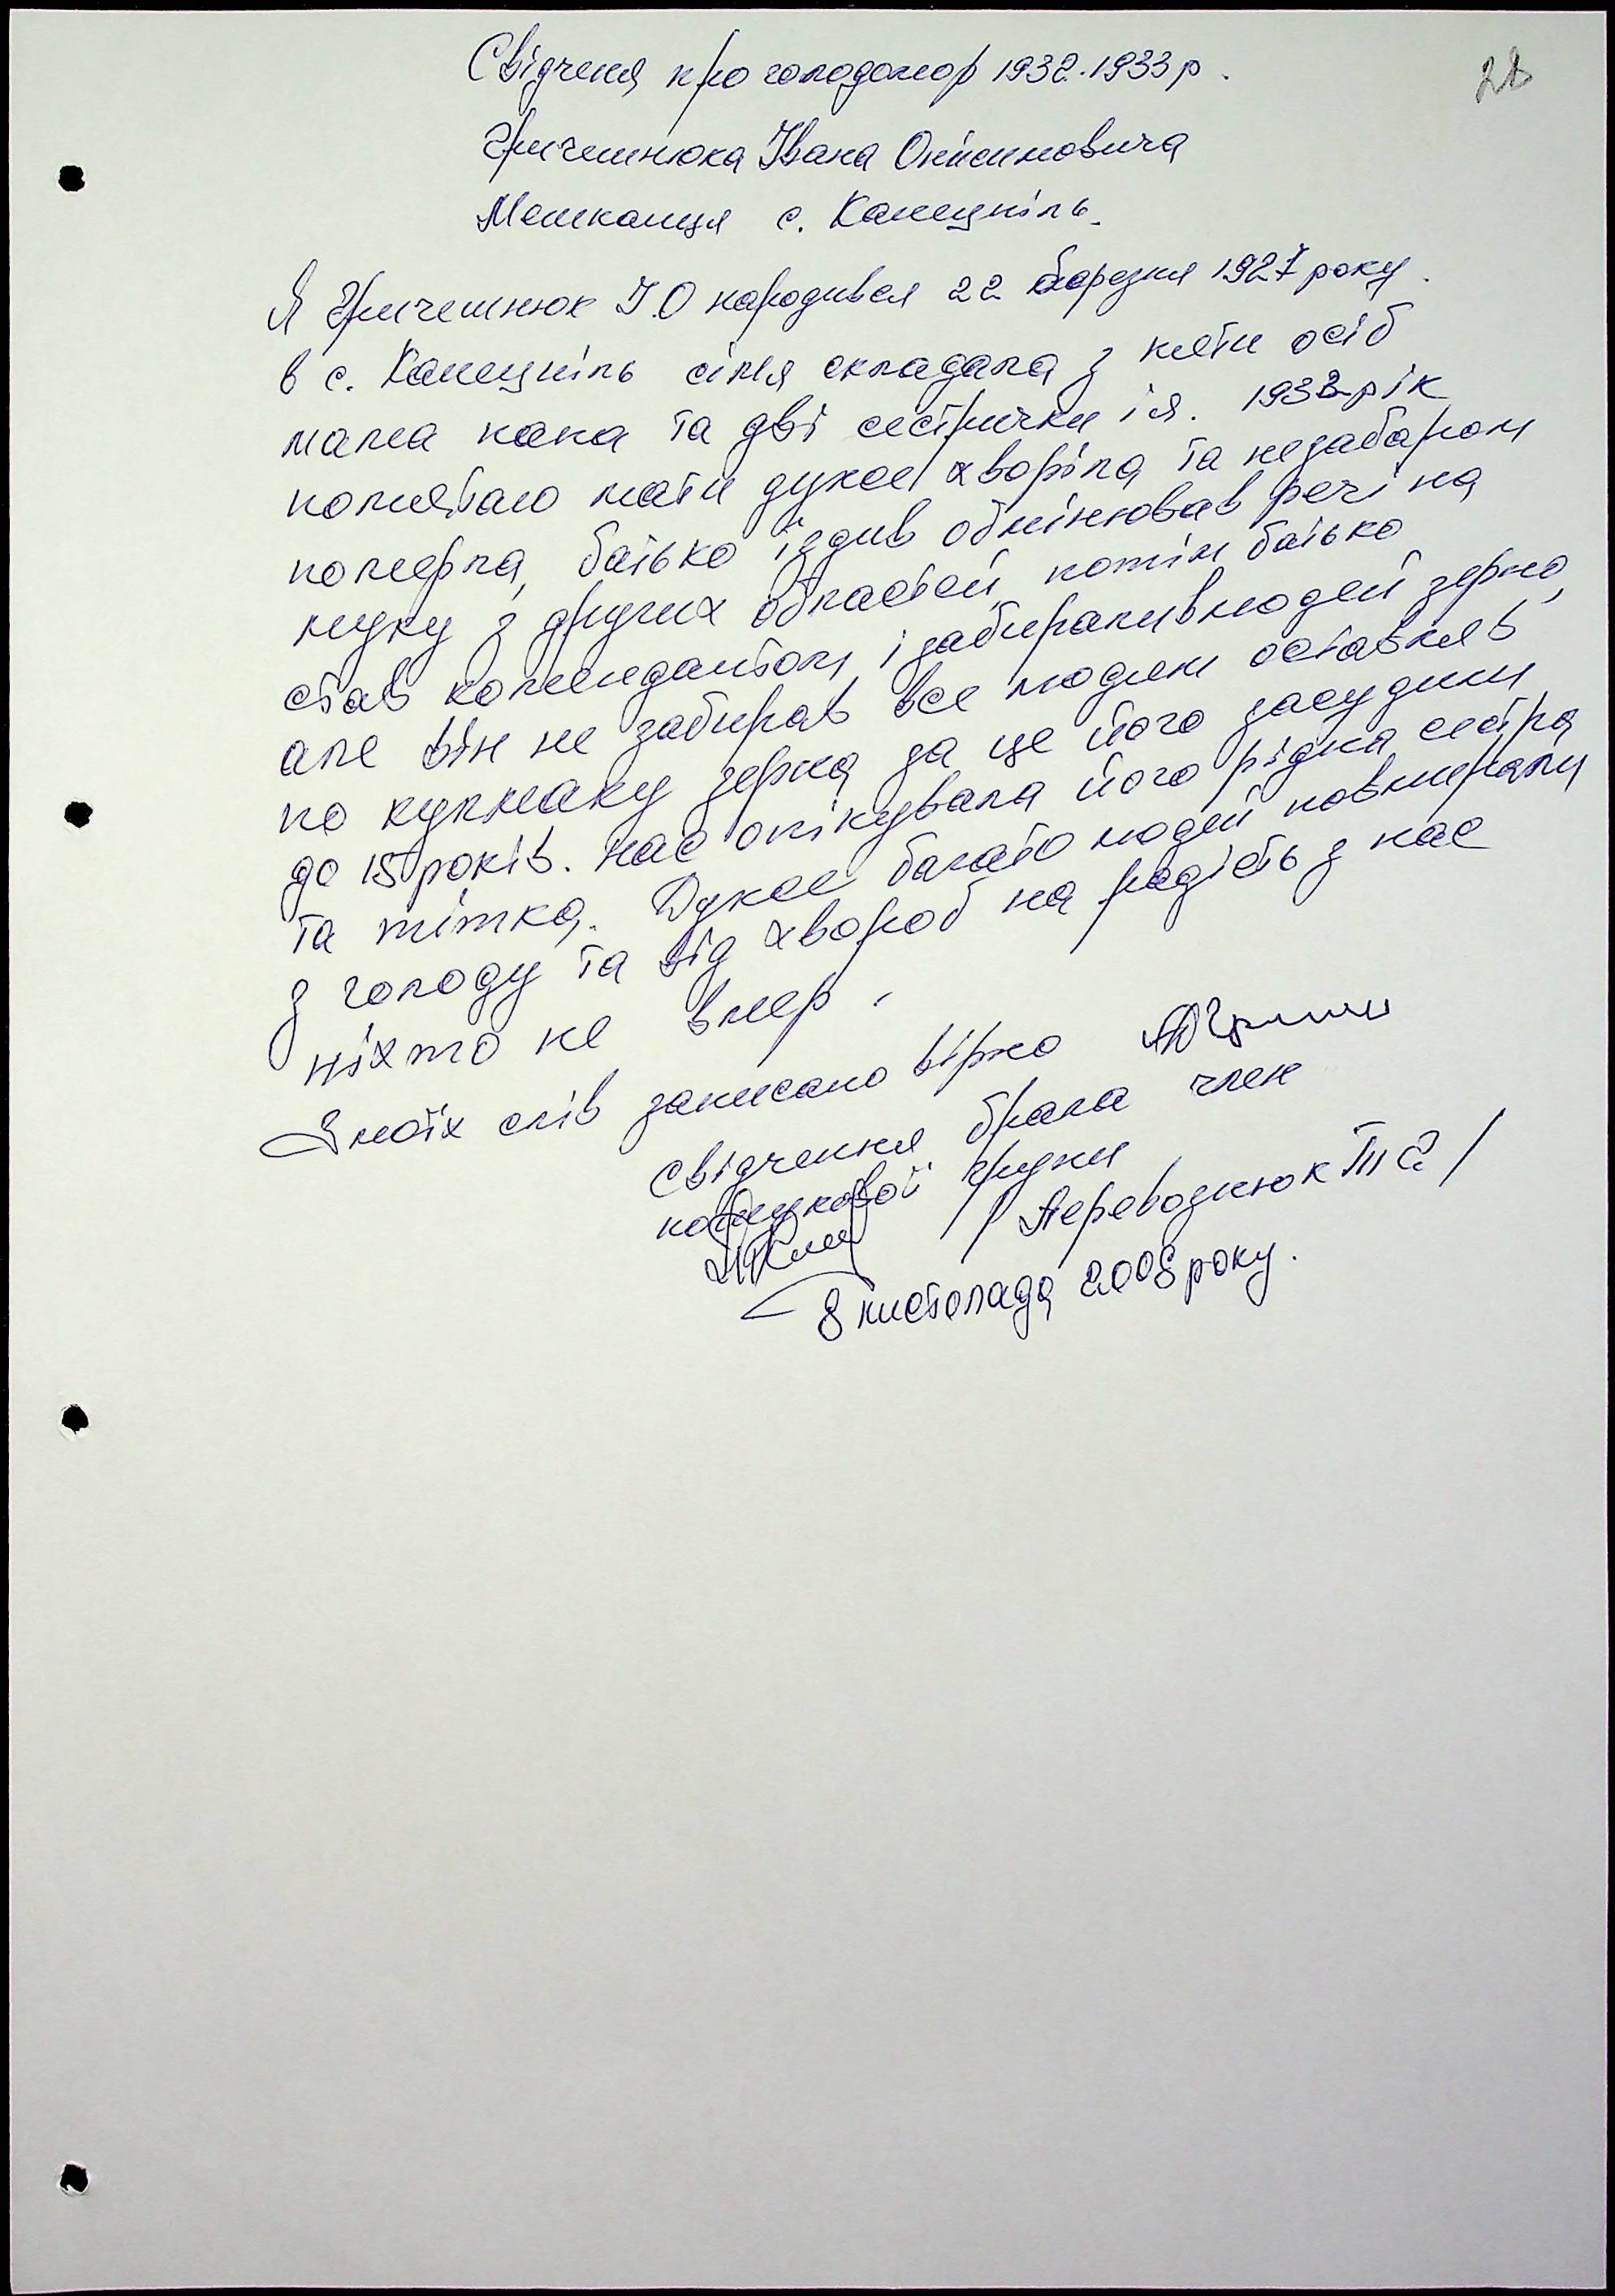 28
Свідченя про голодомор 1932-1933 р.
Гричешнюка Івана Онисимовича
Мешканця с. Канецпіль.
Я Гричешнюк І.О народився 22 березня 1927 року.
в с. Канецпіль сімя складала з пяти осіб
мама папа та дві сестрички і я. 1932 рік
помятаю мати дуже хворіла та незабаром
померла, батько їздив обмінював речі на
муку з других областей, потім батько
став комендантом, і забирали в людей зерно,
але він не забирав все людям оставляв
по кулмаку зерна за це його засудили
до 15 років. Нас опікувала його рідна сестра
та тітка. Дуже багато людей повмирали
з голоду та від хвороб на радість з нас
ніхто не вмер.
З моїх слів записано вірно
Свідчення брала член
пошукової групи
/ Переводнюк Т С /
8 листопада 2008 року.